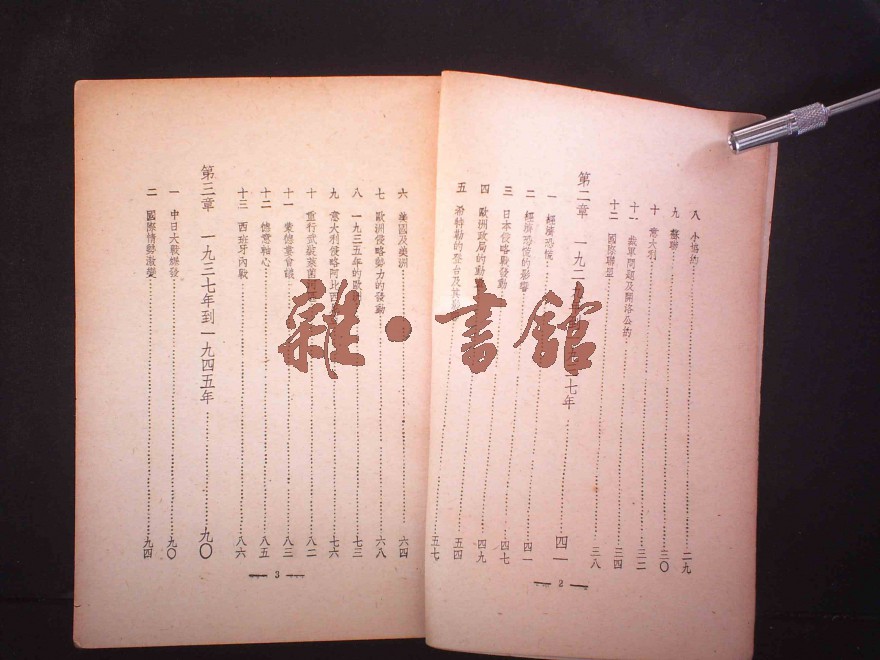 八 小協約 二九
九 蘇聯 三〇
十 意大利 三二
十一 裁軍問題及開洛公約 三四
十二 國際聯盟 三八
第二章 一九二 三七年 四一
一 經濟恐慌 四一
二 經濟恐慌的影響
三 日本侵略戰發動 四七
四 歐洲政局的動 四九
五 希特勒的登台及其 五四
五七
— 2 —
六 美國及美洲 六四
七 歐洲侵略勢力的發動 六八
八 一九三五年的歐 七三
九 意大利侵略阿比西 七六
十 重行武裝萊茵河 八二
十一 柴德婁會議 八三
十二 德意軸心 八五
十三 西班牙內戰 八六
第三章 一九三七年到一九四五年 九〇
一 中日大戰爆發 九〇
二 國際情勢激變 九四
— 3 —
雜·書館